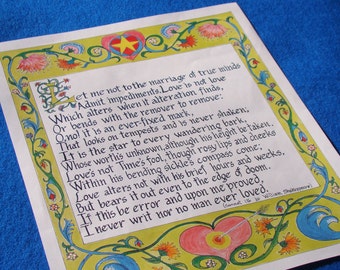 Let me not to the marriage of true minds
Admit impediments. Love is not love
Which alters when it alteration finds,
Or bends with the remover to remove:
O no! it is an ever-fixed mark,
That looks on tempests and is never shaken;
It is the star to every wandering bark,
Whose worth's unknown, although his height be taken.
Love's not Time's fool, though rosy lips and cheeks
Within his bending sickle's compass come;
Love alters not with his brief hours and weeks,
But bears it out even to the edge of doom.
If this be error and upon me proved,
I never writ nor no man ever loved.
(Sonnet 116 by William Shakespeare)